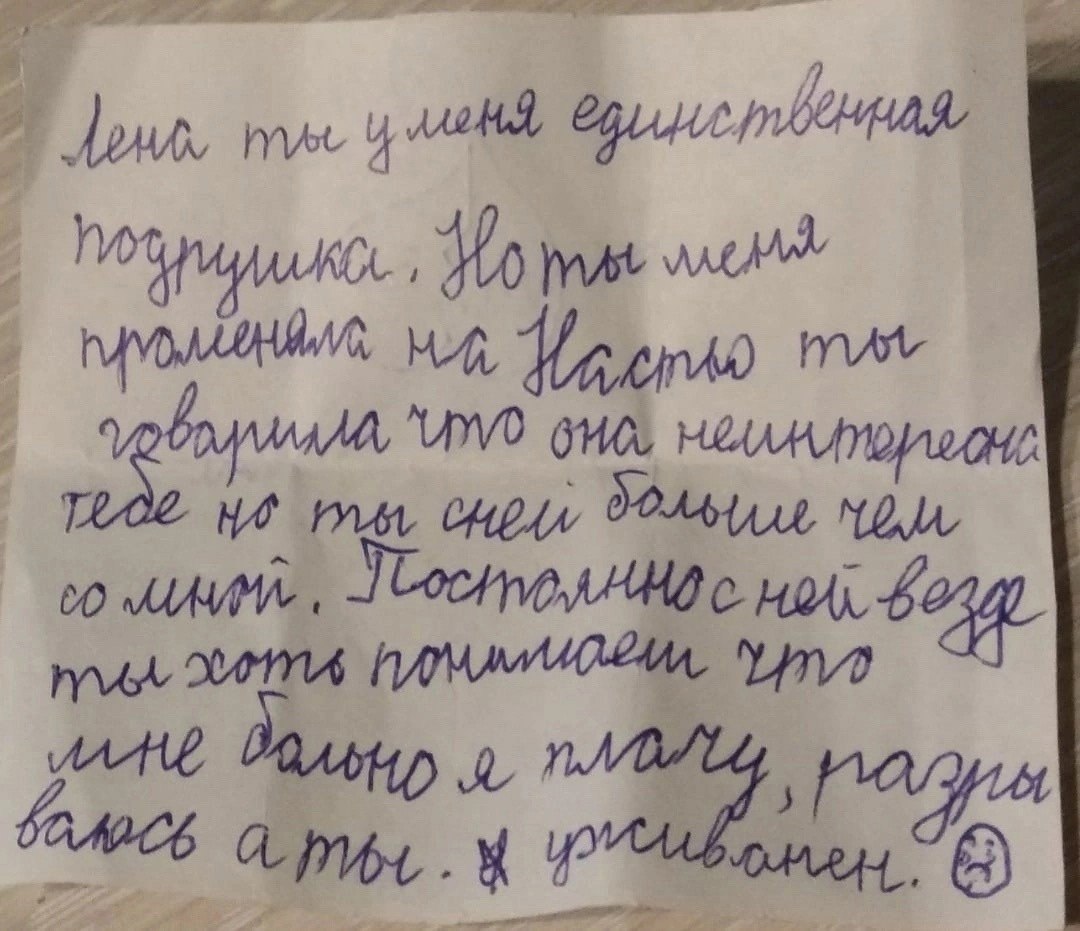 Лена ты у меня единственная
подрушка. Но ты меня
променяла на Настью ты
говорила что она неинтересна
тебе но ты сней больше чем
со мной. Постоянно с ней везде
ты хоть понимаеш что
мне больно я плачу, разры
ваюсь а ты.